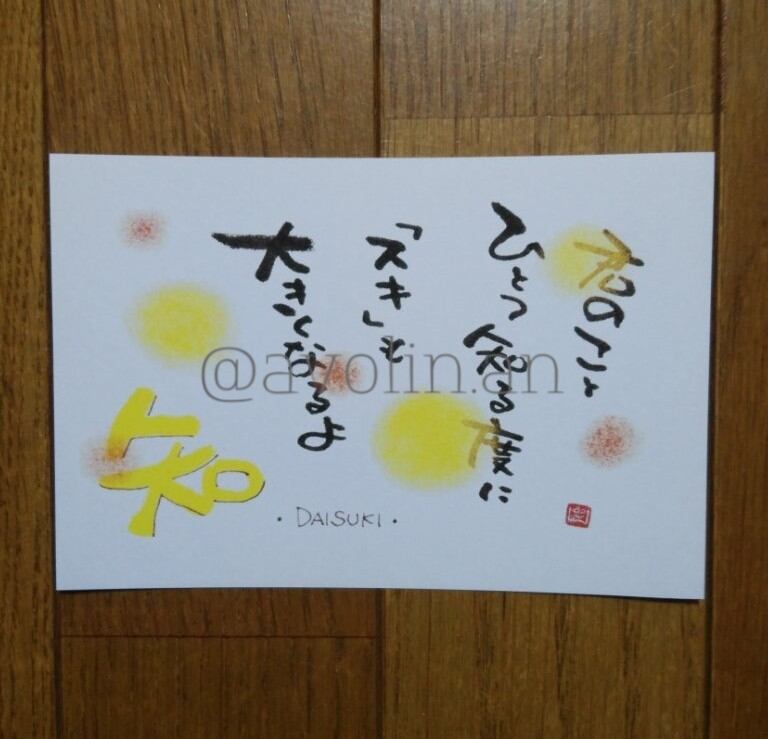 和のこと
ひとつ知る度に
「スキ」も
大きくなるよ
知
・DAISUKI・
@ayolin.an